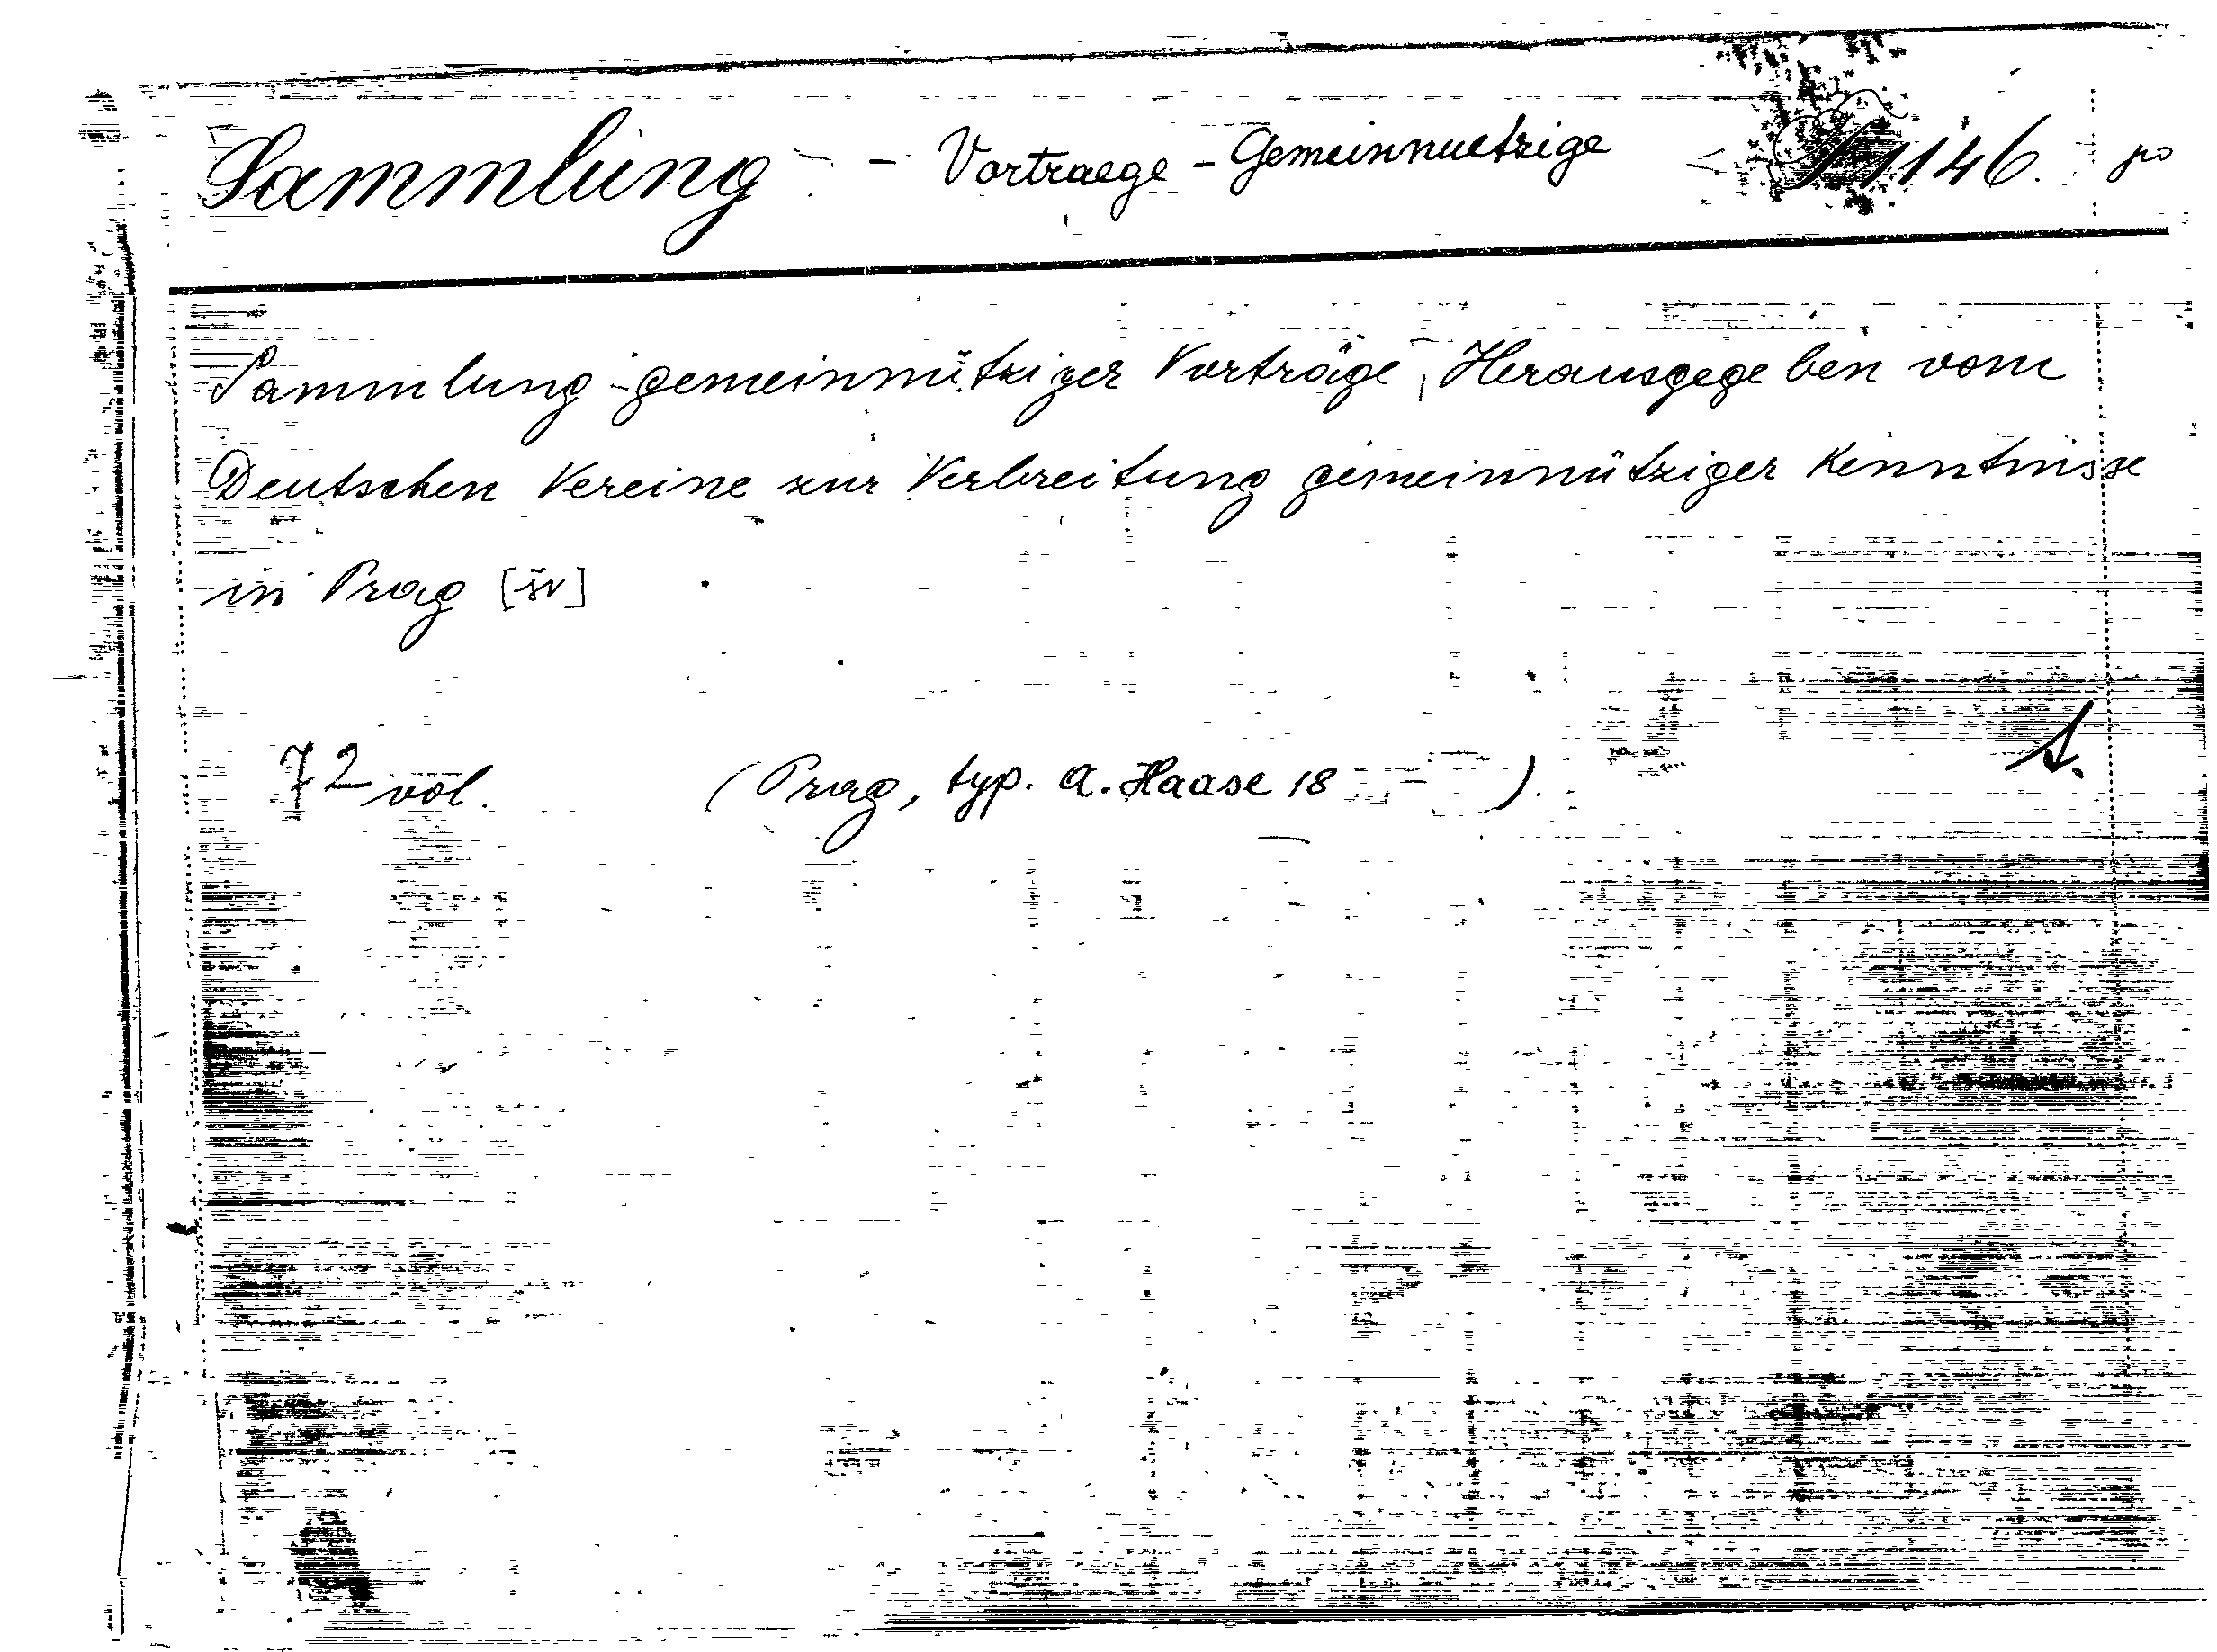 Sammlung - Vortraege - Gemeinnuetzige 1146.
Sammlung gemeinnütziger Vorträge, Herausgegeben vom
Deutschen Vereine zur Verbreitung gemeinnütziger Kenntnisse
in Prag
72 vol. (Prag, typ. A. Haase 18 - ).